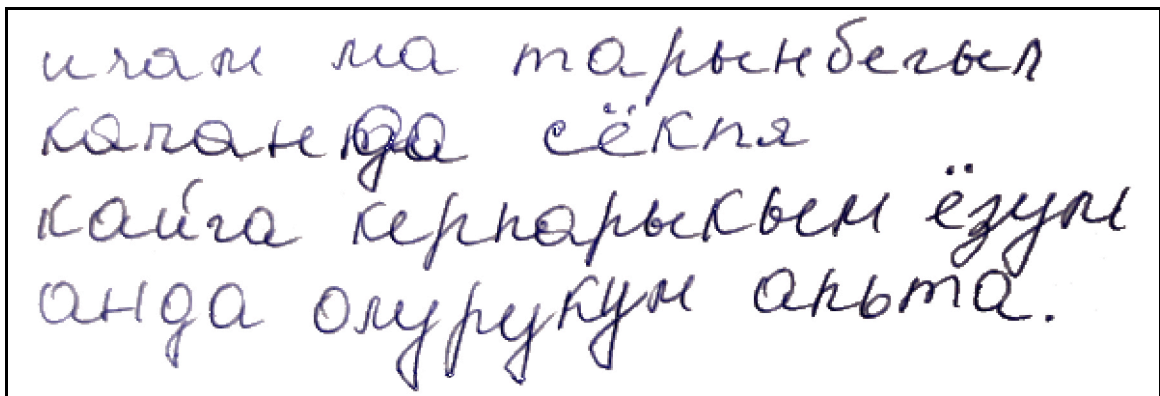 ичам ма тарынбегыл
качанда сёкпя
кайга керпарыкым ёзум
анда олурукум апыта.